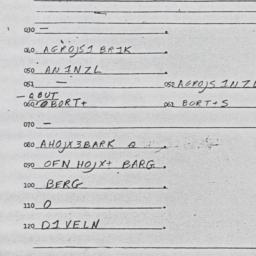 030 —
040 AGROJS1 BR1K
050 AN1NZL
051 — 052 AGROJS1NZL
060 BORT+ 062 BORT+S
070 —
080 AHOJX3BARK
090 OFN HOJX+ BARG
100 BERG
110 O
120 D1VELN